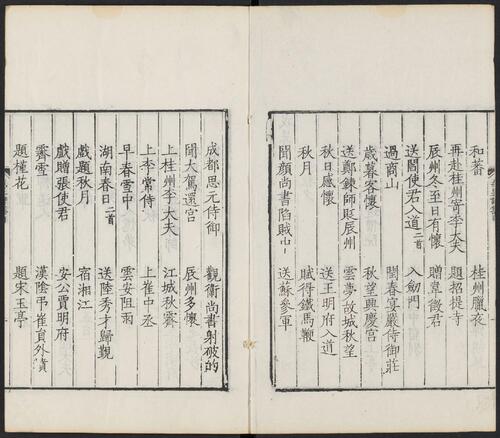 和蕃 桂州臘夜
再赴桂州寄李大夫 題招提寺
辰州冬至日有懷 贈韋徵君
送閻使君入道二首 入劒門
過商山 閏春宴嚴侍御莊
歲暮客懷 秋望興慶宮
送鄭鍊師貶辰州 雲夢故城秋望
秋日感懷 送王明府入道
秋月 賦得鐵馬鞭
聞顔尚書陷賊中 送蘇參軍
成都思元侍御 觀衞尚書射破的
聞大駕還宮 辰州多懷
上桂州李大夫 江城秋霽
上李常侍 上崔中丞
早春雪中 雲安阻雨
湖南春日二首 送陸秀才歸覲
戲題秋月 宿湘江
戲贈張使君 安公賈明府
霽雪 漢陰弔崔員外墳
題槿花 題宋玉亭